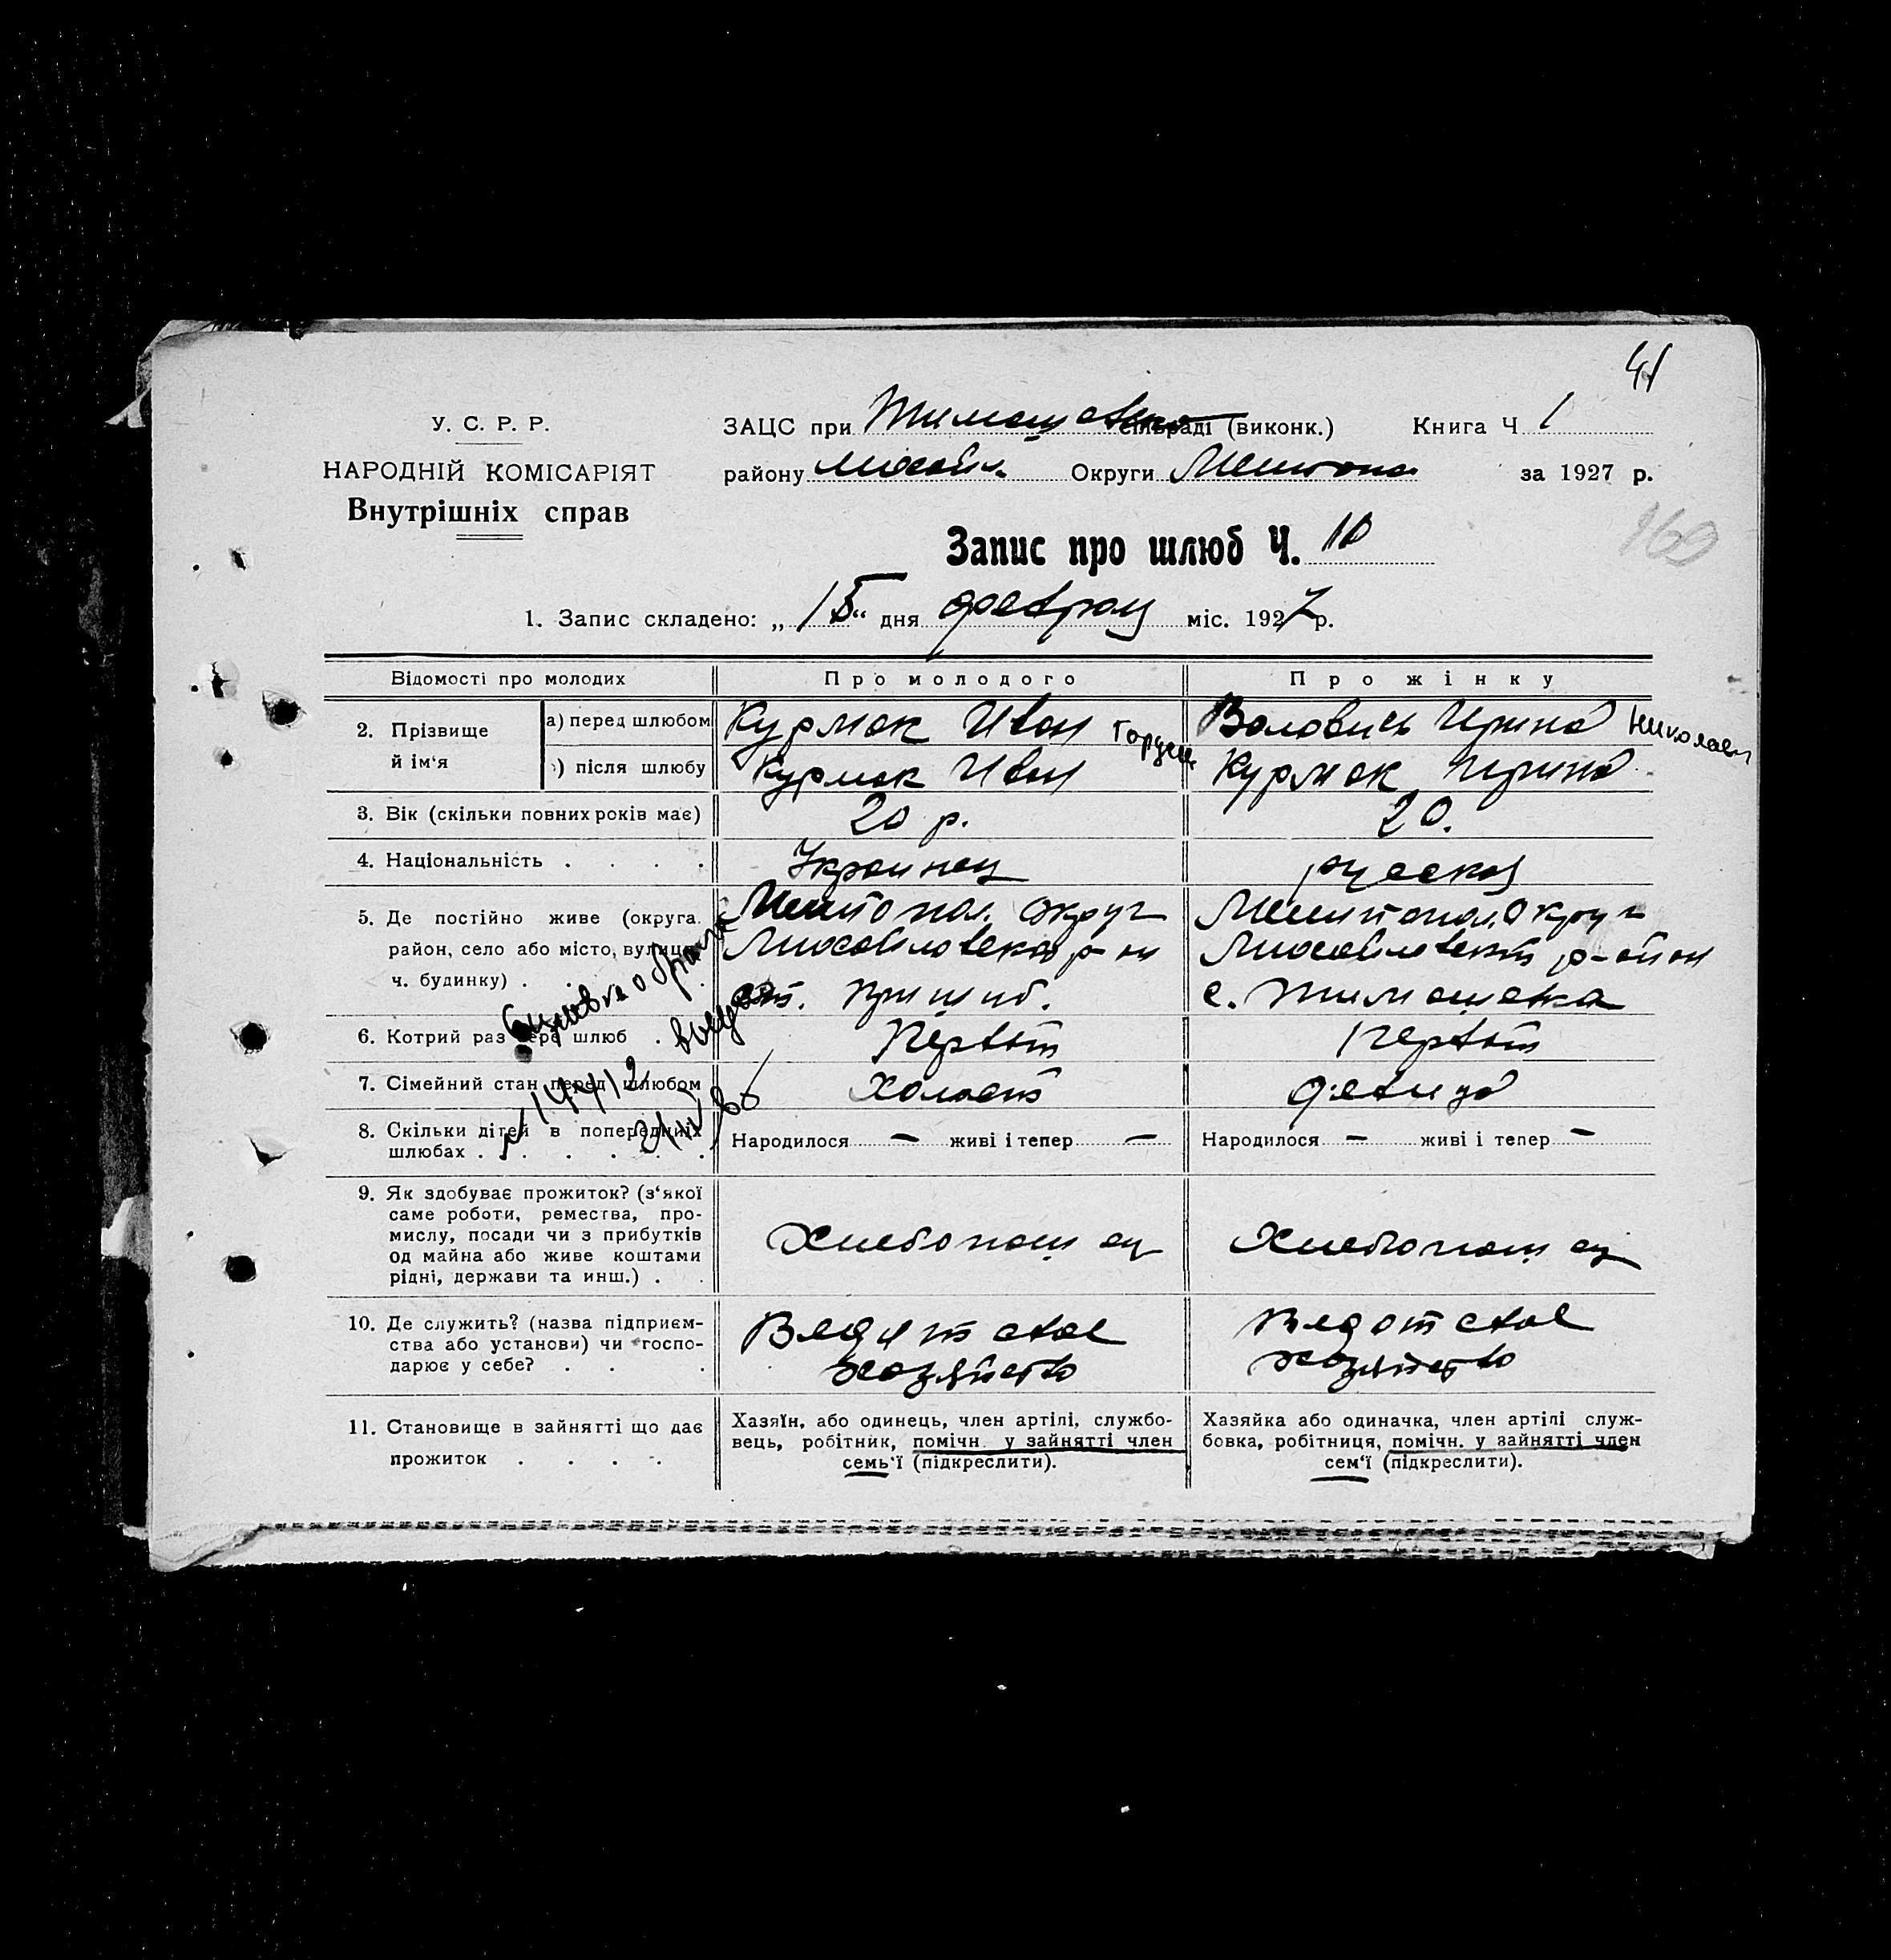 41
У. С. Р. Р.
НАРОДНІЙ КОМІСАРІЯТ
Внутрішніх справ
ЗАЦС при Тимошевск сільраді (виконк.) Книга Ч 1
району Михайл. Округи Мелитоп. за 1927 р.
169
Запис про шлюб Ч. 10
1. Запис складено: „ 15 “ дня февраля міс. 1927 р.
Відомості про молодих Про молодого Про жінку
2. Прізвище й ім‘я
а) перед шлюбом Курмак Иван Гордеев Воловись Ирина Николаев
) після шлюбу Курмак Иван Курмак Ирина
3. Вік (скільки повних років має) 20 р. 20.
4. Національність . . . . Украинец русская
5. Де постійно живе (округа, район, село або місто, вулиця, ч. будинку) .
Мелитопол. округ
Михайловский р-н
ст. Пришиб.
Мелитопол. округ
Михайловский р-айон
с. Тимошевка
6. Котрий раз бере шлюб . Первый Первый
7. Сімейний стан перед шлюбом Холост девица
8. Скільки дітей в попередніх шлюбах . . . . . . .
Народилося — живі і тепер —
Народилося — живі і тепер —
9. Як здобуває прожиток? (з‘якої
саме роботи, ремества, про-
мислу, посади чи з прибутків
од майна або живе коштами
рідні, держави та инш.) . .
Хлебопашец Хлебопашец
10. Де служить? (назва підприєм-
ства або установи) чи госпо-
дарює у себе? . . .
Ведет свое
хозяйство
Ведет свое
хозяйство
11. Становище в зайнятті що дає
прожиток . . . .
Хазяїн, або одинець, член артілі, службо-
вець, робітник, помічн. у зайнятті член
семь‘ї (підкреслити).
Хазяйка або одиначка, член артілі служ-
бовка, робітниця, помічн. у зайнятті член
сем‘ї (підкреслити).
о браке